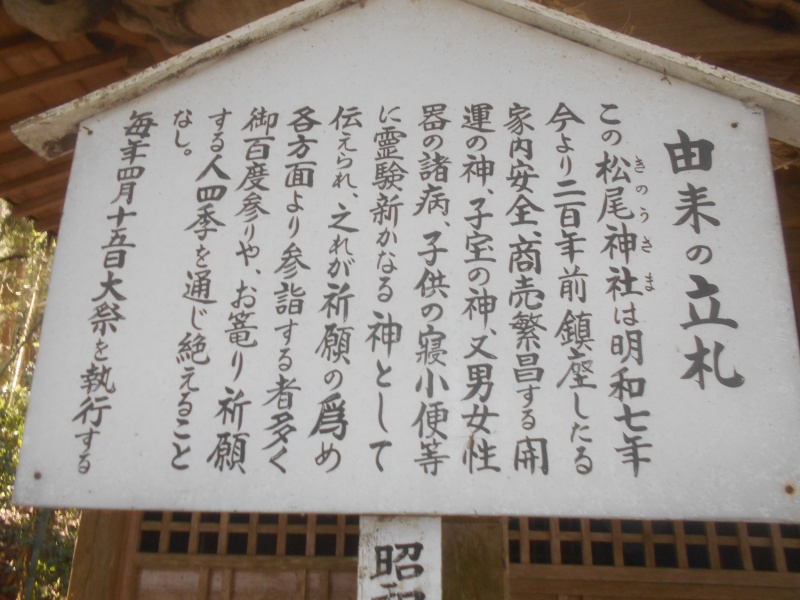 由来の立札
きのうさま
この松尾神社は明和七年
今より二百年前鎮座したる
家内安全、商売繁昌する開
運の神、子宝の神、又男女性
器の諸病、子供の寝小便等
に霊験新かなる神として
伝えられ、之れが祈願の為め
各方面より参詣する者多く
御百度参りや、お篭り祈願
する人四季を通じ絶えること
なし。
毎年四月十五日大祭を執行する
昭和